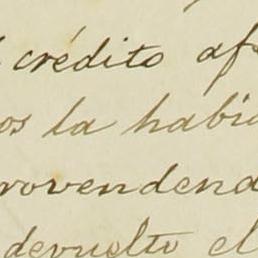 crédito af
os la habi
rovendend
devuelto el